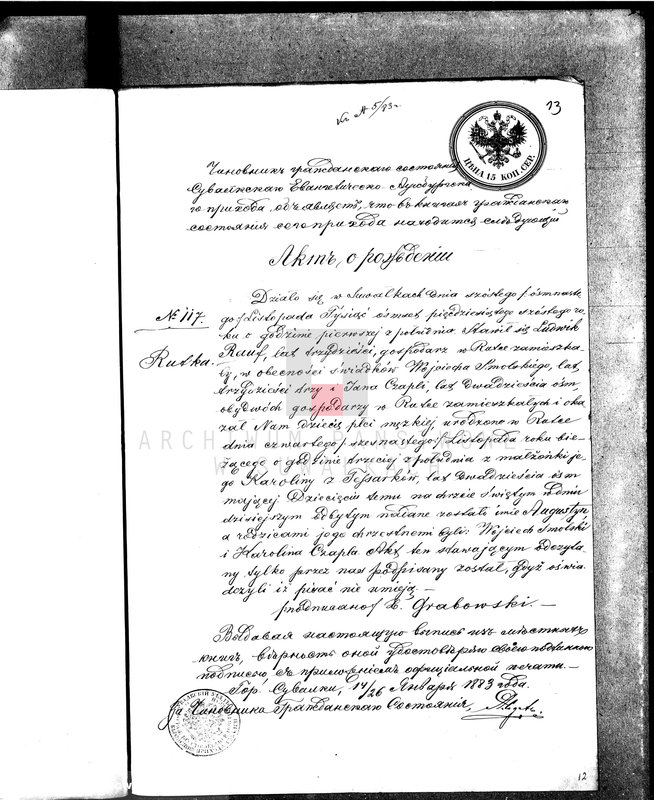 5/83
13
ЦѢНА 15 КОП. СЕР.
Чиновникъ гражданскаго состоянія
Сувалкскаго Евангелическо-Аугсбургска-
го прихода объявляетъ, что въ книгахъ гражданскаго
состоянія сего прихода находится слѣдующій
Актъ о рожденіи
№ 117.
Rutka.
Działo się w Suwałkach dnia szóstego / ósmnaste-
go / Listopada Tysiąc ósmset pięćdziesiątego szóstego ro-
ku o godzinie pierwszej z południa. Stawił się Ludwik
Rauf, lat trzydzieści, gospodarz w Rutce zamieszka-
ły, w obecności świadków Wojciecha Smolskiego, lat
trzydzieści trzy i Jana Czapli, lat dwadzieścia ośm
obydwóch gospodarzy w Rutce zamieszkałych i oka-
zał Nam dziecię płci męzkiej urodzone w Rutce
dnia czwartego / szesnastego / Listopada roku bie-
żącego o godzinie trzeciej z południa z małżonki je-
go Karoliny z lat dwadzieścia ośm
mającej Dziecięciu temu na chrzcie świętym w dniu
dzisiejszym odbytym nadane zostało imie Augustyn
a rodzicami jego chrzestnemi byli: Wojciech Smolski
i Karolina Czapla Akt ten stawającym odczyta-
ny tylko przez nas podpisany został, gdyż oświa-
dczyli iż pisać nie umieją. —
podpisano X. Grabowski. —
Выдавая настоящую выпись изъ мѣстныхъ
книгъ, вѣрность оной удостовѣряю своею
подписью, съ приложеніемъ оффиціальной печати. —
Гор. Сувалки, 14/26 Января 1883 года.
За Чиновника Гражданскаго Состоянія,
12